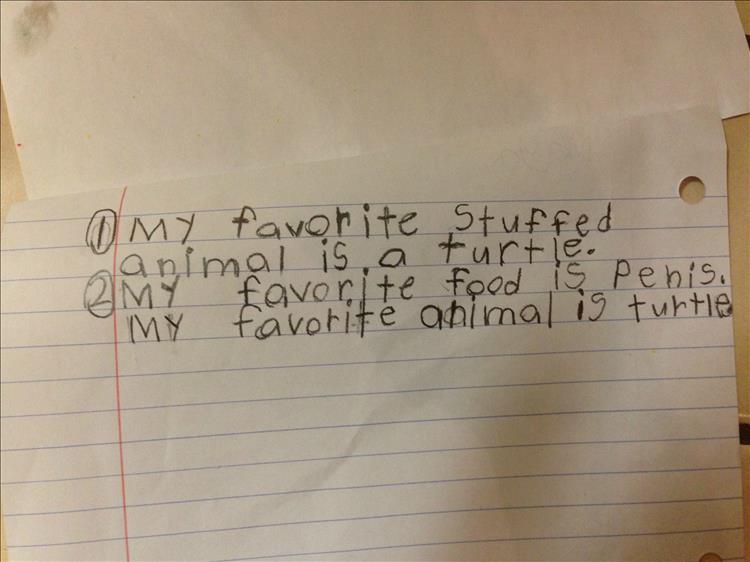 ① My favorite Stuffed
animal is a turtle.
② MY favorite food is Penis.
MY favorite animal is turtle